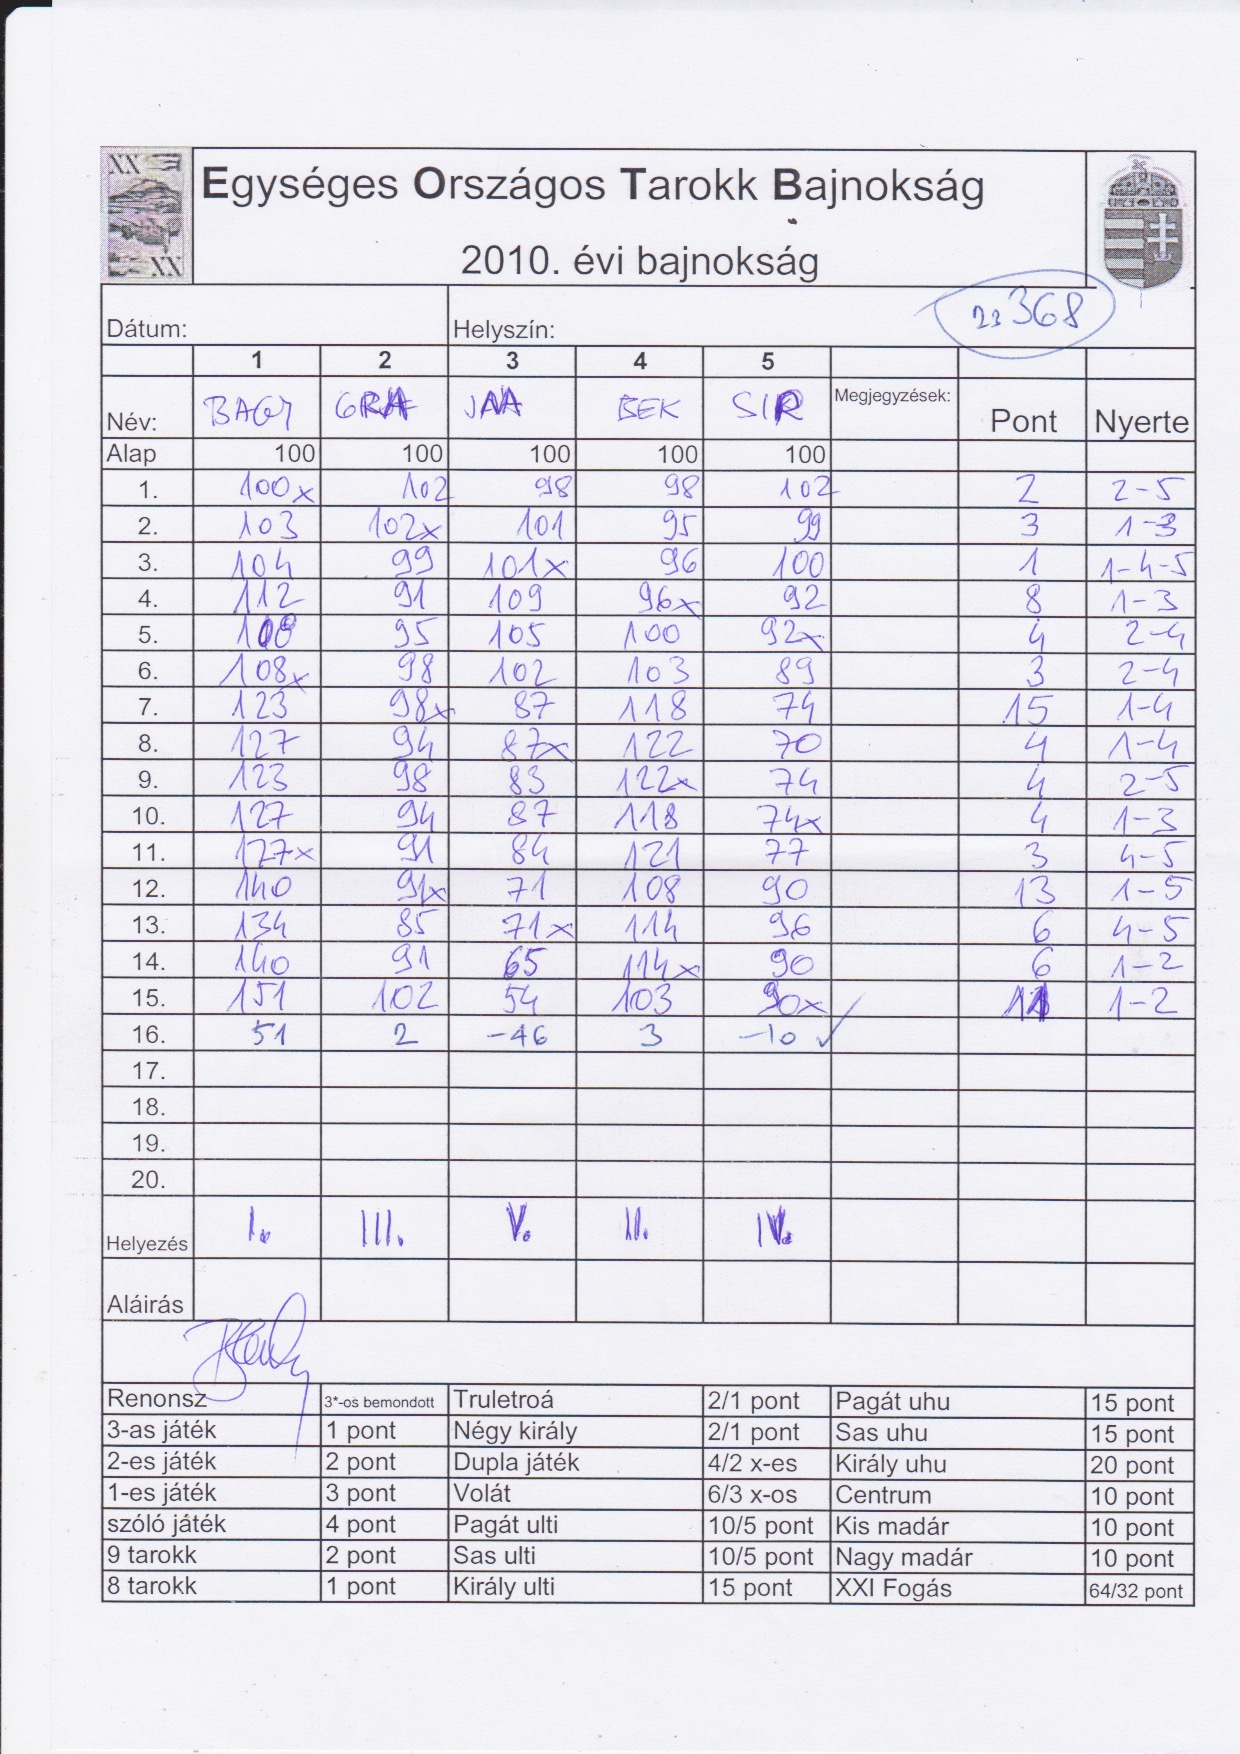 XX
XX
Egységes Országos Tarokk Bajnokság
2010. évi bajnokság
Dátum: Helyszín: 23368
1 2 3 4 5
Név: BAGY GRA JAA BEK SIR Megjegyzések: Pont Nyerte
Alap 100 100 100 100 100
1. 100x 102 98 98 102 2 2-5
2. 103 102x 101 95 99 3 1-3
3. 104 99 101x 96 100 1 1-4-5
4. 112 91 109 96x 92 8 1-3
5. 108 95 105 100 92x 4 2-4
6. 108x 98 102 103 89 3 2-4
7. 123 98x 87 118 74 15 1-4
8. 127 94 87x 122 70 4 1-4
9. 123 98 83 122x 74 4 2-5
10. 127 94 87 118 74x 4 1-3
11. 127x 91 84 121 77 3 4-5
12. 140 91x 71 108 90 13 1-5
13. 134 85 71x 114 96 6 4-5
14. 140 91 65 114x 90 6 1-2
15. 151 102 54 103 90x 11 1-2
16. 51 2 -46 3 -10 ✓
17.
18.
19.
20.
Helyezés I. III. V. II. IV.
Aláirás
Renonsz 3*-os bemondott Truletroá 2/1 pont Pagát uhu 15 pont
3-as játék 1 pont Négy király 2/1 pont Sas uhu 15 pont
2-es játék 2 pont Dupla játék 4/2 x-es Király uhu 20 pont
1-es játék 3 pont Volát 6/3 x-os Centrum 10 pont
szóló játék 4 pont Pagát ulti 10/5 pont Kis madár 10 pont
9 tarokk 2 pont Sas ulti 10/5 pont Nagy madár 10 pont
8 tarokk 1 pont Király ulti 15 pont XXI Fogás 64/32 pont